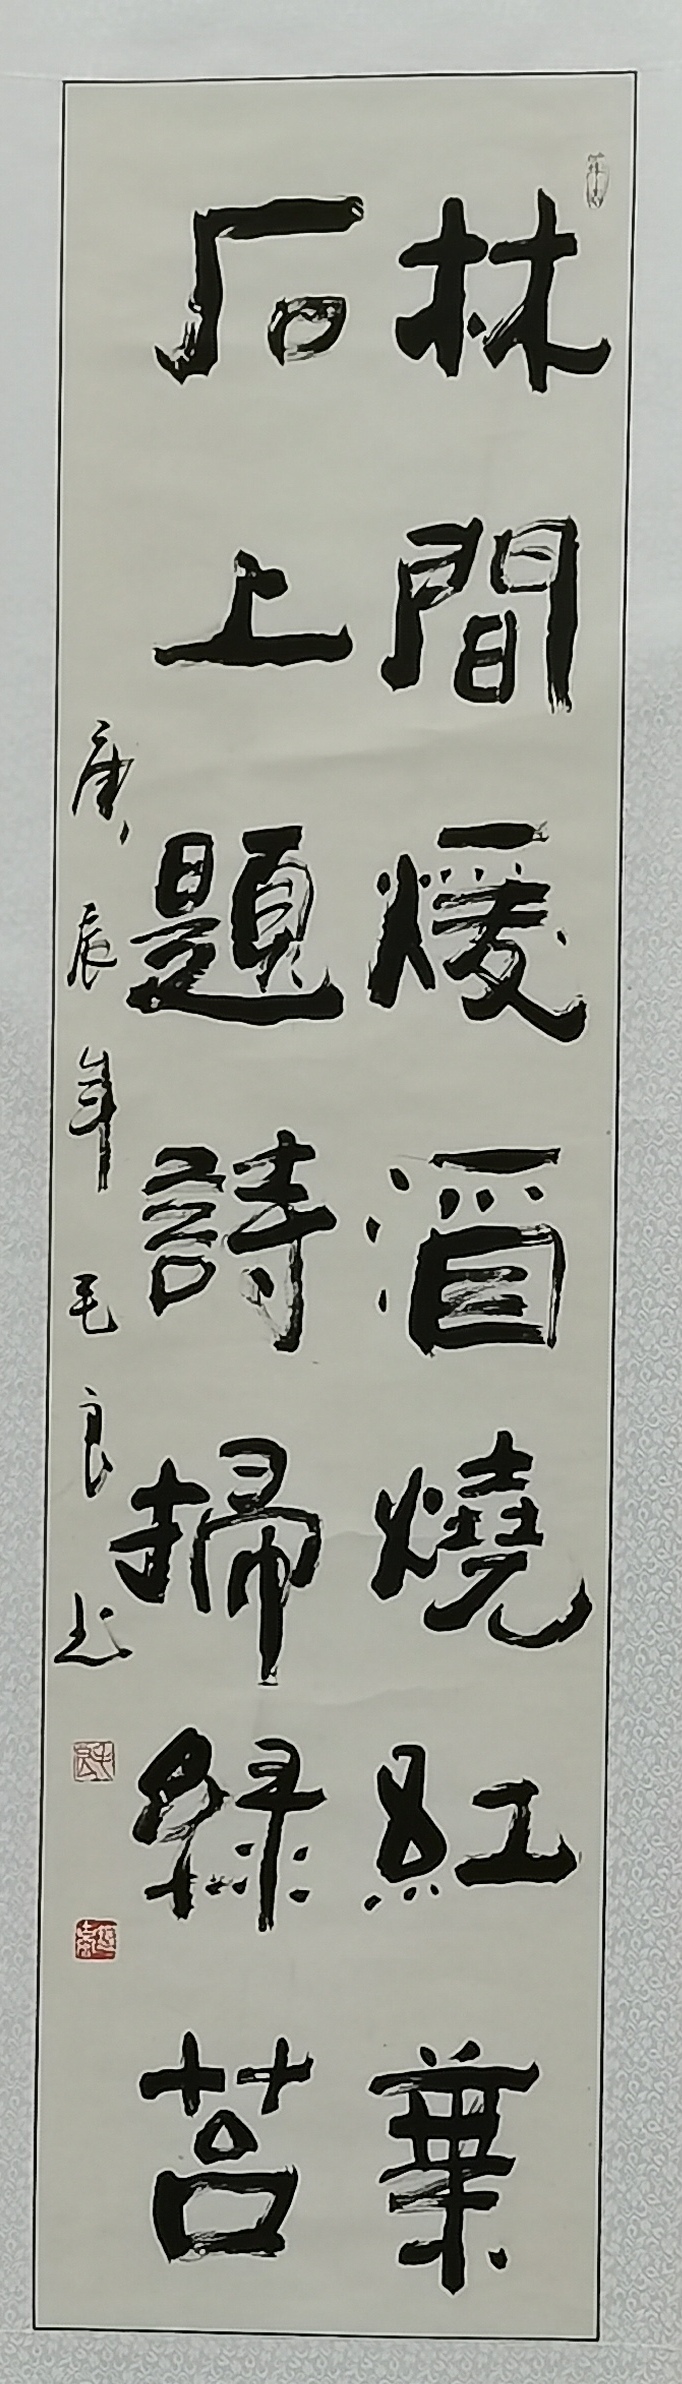 林間煖酒燒紅葉
石上題詩掃綠苔
庚辰年毛良书